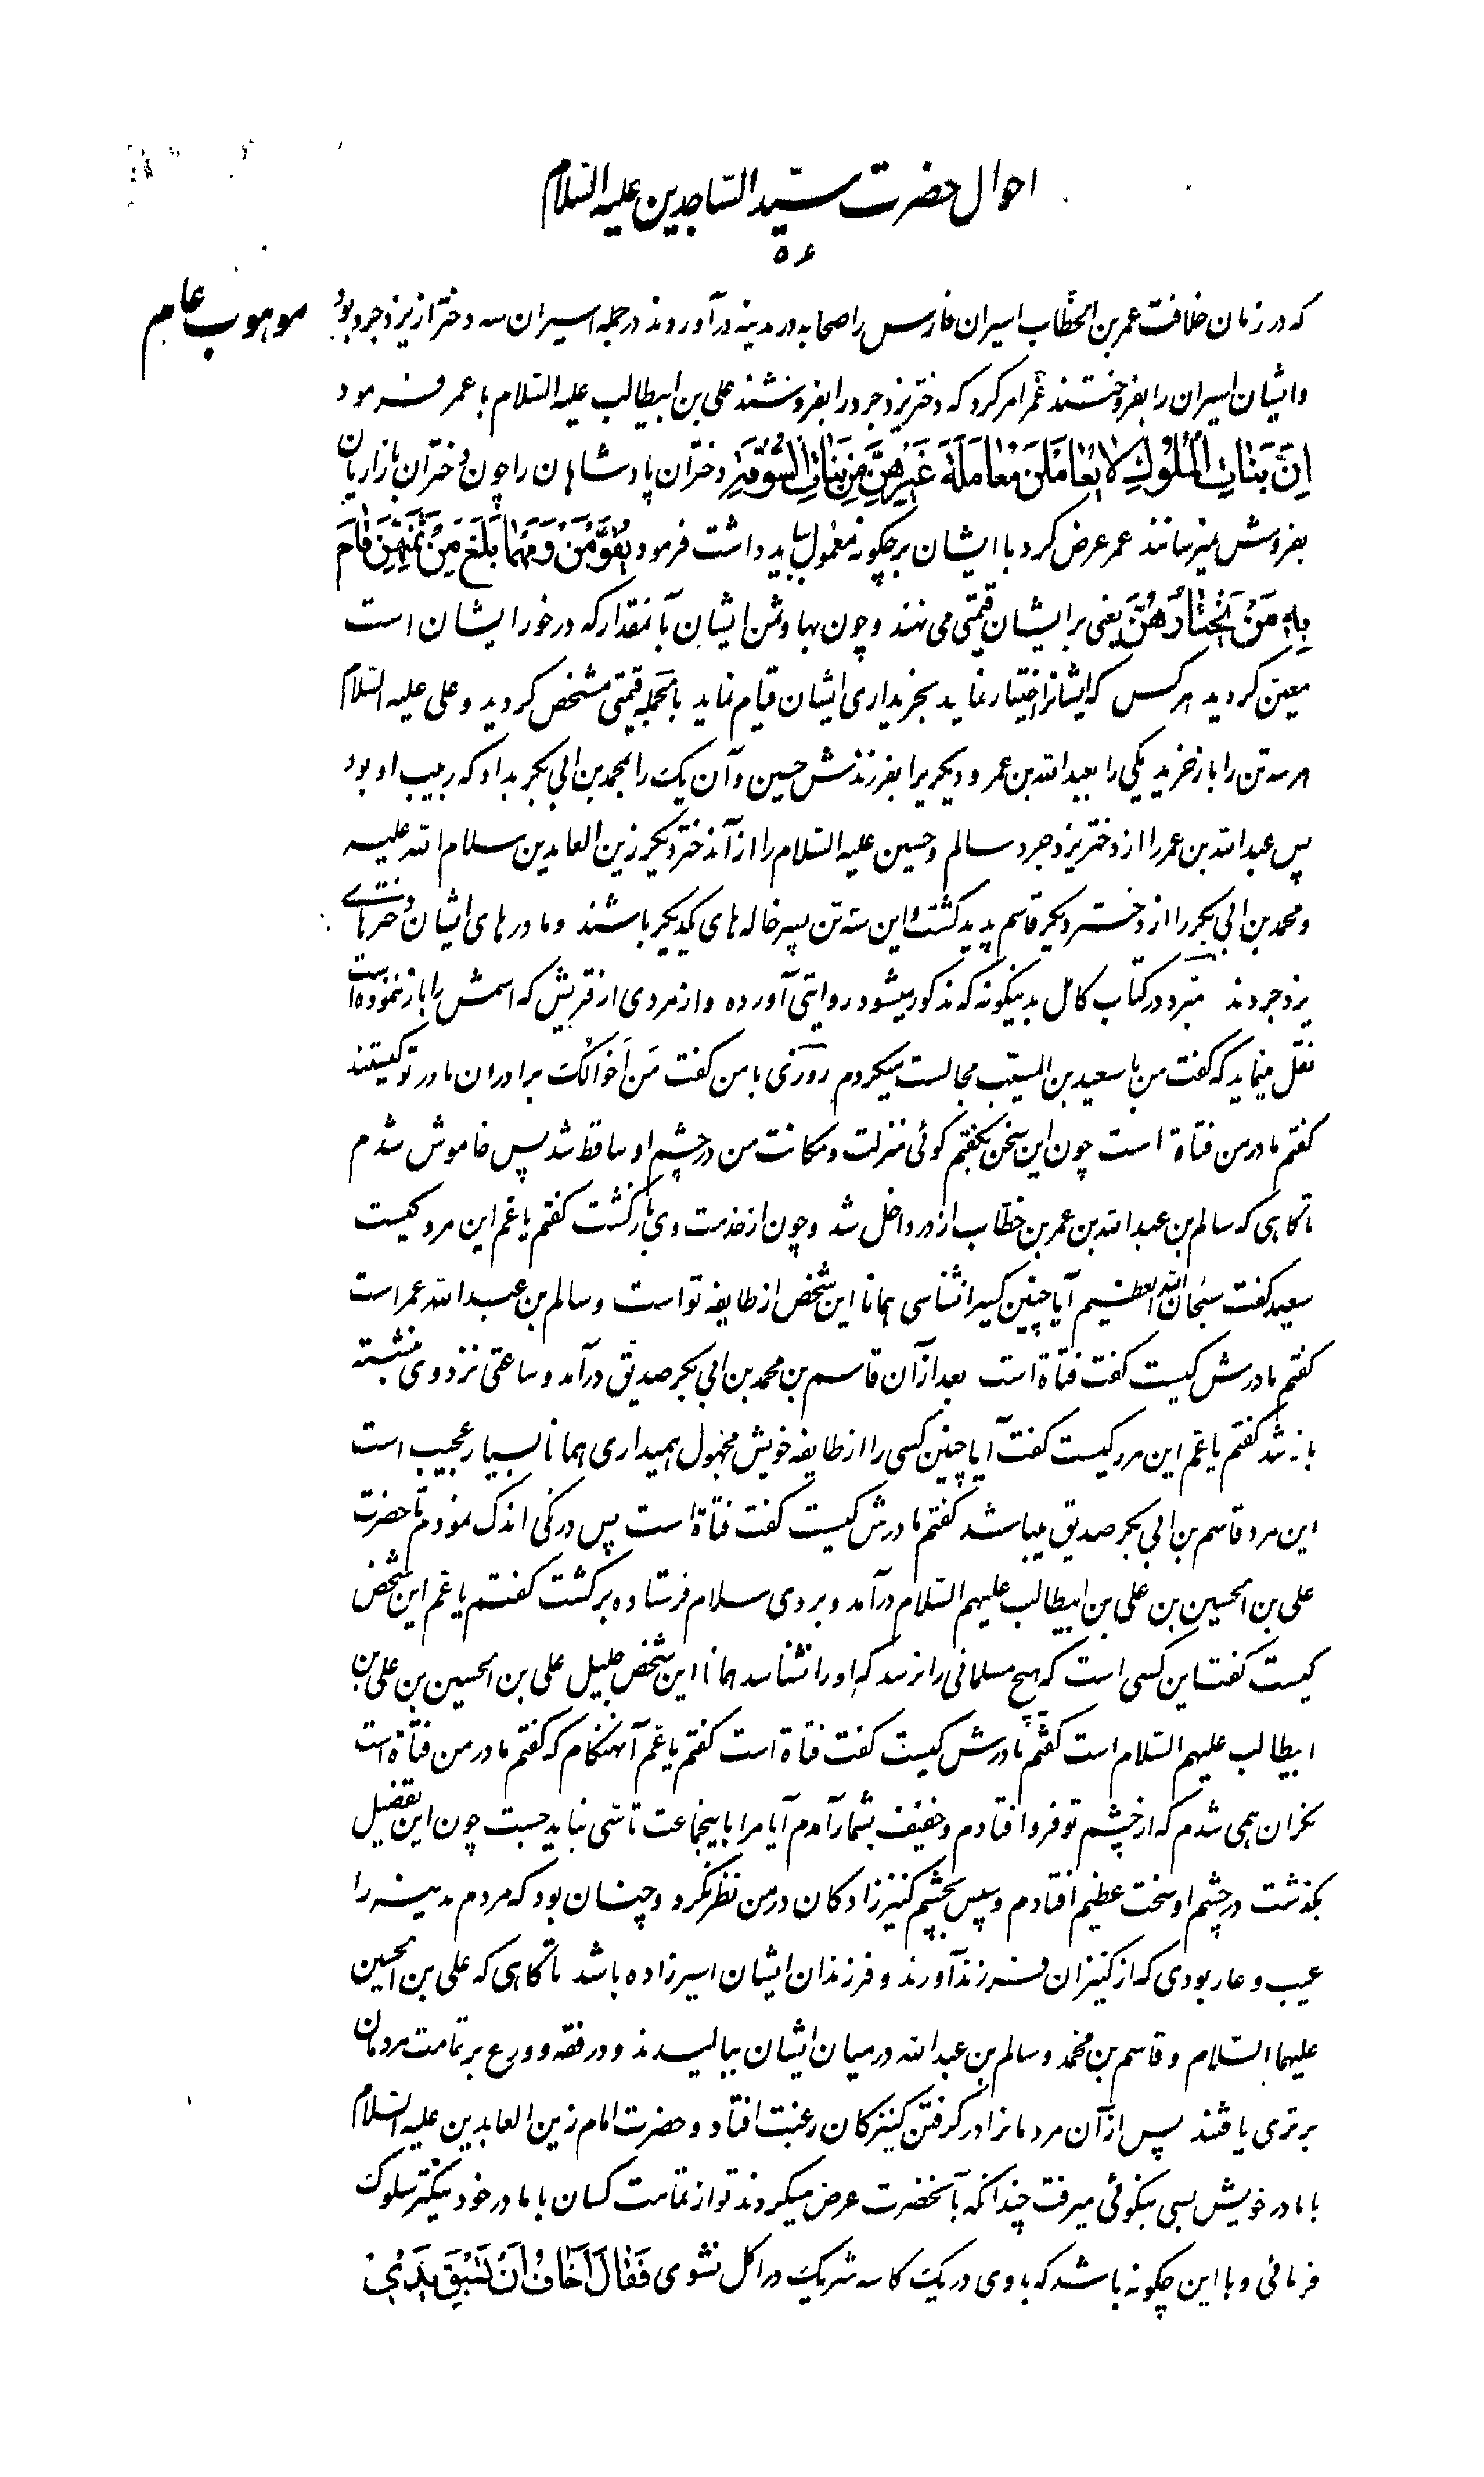 احوال حضرت سیّد السّاجدین علیه السّلام
۵۶
که در زمان خلافت عمر بن الخطّاب اسیران فارس را صحابه در مدینه در آوردند در جمله اسیران سه دختر از یزدجرد بود
موهوب عام
و ایشان اسیران را بفروختند عمر امر کرد که دختر یزدجرد را بفروشند علی بن ابیطالب علیه السّلام با عمر فرمود
اِنَّ بَنٰاتِ الْمُلُوكِ لا یُعٰامَلْنَ مُعٰامَلَةَ غَیْرِهِنَّ مِنْ بَنٰاتِ السُّوقَةِ دختران پادشاهان را چون دختران بازاریان
بفروش نمیرسانند عمر عرض کرد با ایشان بر چگونه معمول باید داشت فرمود یُقَوَّمْنَ وَ مَهْمٰا بَلَغَ مِنْ ثَمَنِهِنَّ قٰامَ
بِهِ مَنْ یَخْتٰارُهُنَّ یعنی بر ایشان قیمتی می نهند و چون بها و ثمن ایشان بآنمقدار که در خور ایشان است
معین گردید هر کس که ایشانرا اختیار نماید بخریداری ایشان قیام نماید بالجمله قیمتی مشخص گردید و علی علیه السّلام
هر سه تن را باز خرید یکی را بعبد الله بن عمر و دیگریرا بفرزندش حسین و آن یک را بمحمد بن ابی بکر بداد که ربیب او بود
پس عبد الله بن عمر را از دختر یزدجرد سالم و حسین علیه السّلام را از آندختر دیگر زین العابدین سلام الله علیه
و محمد بن ابی بکر را از دختر دیگر قاسم پدید گشت و این سه تن پسر خاله های یکدیگر باشند و مادرهای ایشان دخترهای
یزدجردند مبرّد در کتاب کامل بدینگونه که مذکور میشود روایتی آورده و از مردی از قریش که اسمش را باز ننموده است
نقل مینماید که گفت من با سعید بن المسیّب مجالست میکردم روزی با من گفت مَن اَخوالُکَ برادران مادر تو کیستند
گفتم مادر من فتاة است چون این سخن بگفتم گوئی منزلت و مکانت من در چشم او ساقط شد پس خاموش شدم
تا گاهی که سالم بن عبد الله بن عمر بن خطّاب از در داخل شد و چون از خدمت وی بازگشت گفتم یا عم این مرد کیست
سعید گفت سبحان الله العظیم آیا چنین کسیرا نشناسی همانا این شخص از طایفه تو است و سالم بن عبد الله عمر است
گفتم مادرش کیست گفت فتاة است بعد از آن قاسم بن محمد بن ابی بکر صدیق در آمد و ساعتی نزد وی نشسته
باز شد گفتم یا عم این مرد کیست گفت آیا چنین کسی را از طایفه خویش مجهول همیداری همانا بسیار عجیب است
این مرد قاسم بن ابی بکر صدیق میباشد گفتم مادرش کیست گفت فتاة است پس درنگی اندک نمودم تا حضرت
علی بن الحسین بن علی بن ابیطالب علیهم السّلام در آمد و بر وی سلام فرستاده برگشت گفتم یا عم این شخص
کیست گفت این کسی است که هیچ مسلمانی را نرسد که او را نشناسد همانا این شخص جلیل علی بن الحسین بن علی بن
ابیطالب علیهم السّلام است گفتم مادرش کیست گفت فتاة است گفتم یا عم آنهنگام که گفتم مادر من فتاة است
نگران همی شدم که از چشم تو فرو افتادم و خفیف بشمار آمدم آیا مرا باینجماعت تاسّی نباید جست چون این تفضیل
بگذشت در چشم او سخت عظیم افتادم و سپس بچشم کنیززادگان در من نظر نکرد و چنان بود که مردم مدینه را
عیب و عار بودی که از کنیزان فرزند آورند و فرزندان ایشان اسیرزاده باشد تا گاهی که علی بن الحسین
علیهما السّلام و قاسم بن محمد و سالم بن عبد الله در میان ایشان ببالیدند و در فقه و ورع بر تمامت مردمان
برتری یافتند پس از آن مردمانرا در گرفتن کنیزکان رغبت افتاد و حضرت امام زین العابدین علیه السّلام
با مادر خویش بسی نیکوئی میرفت چندانکه بآنحضرت عرض میکردند تو از تمامت کسان با مادر خود نیکتر سلوک
فرمائی و با این چگونه باشد که با وی در یک کاسه شریک در اکل نشوی فَقٰالَ اَخٰافُ اَنْ تَسْبِقَ یَدِی